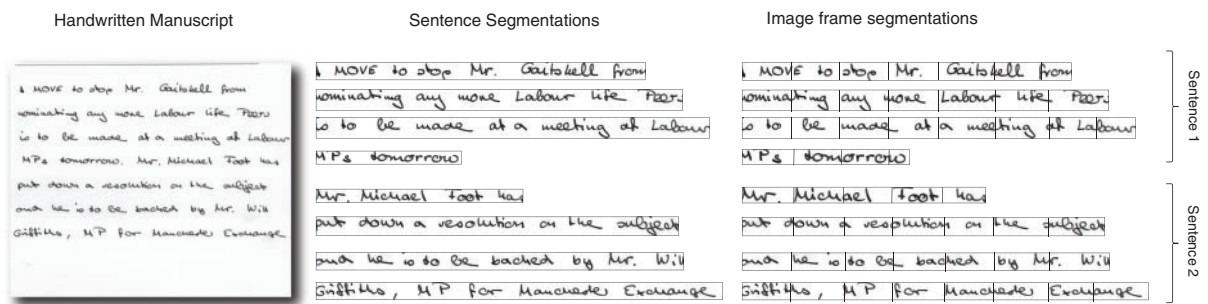 Handwritten Manuscript
A MOVE to stop Mr. Gaitskell from
nominating any more Labour Life Peers
is to be made at a meeting of Labour
MPs tomorrow. Mr. Michael Foot has
put down a resolution on the subject
and he is to be backed by Mr. Will
Griffiths, MP for Manchester Exchange
Sentence Segmentations
A MOVE to stop Mr. Gaitskell from
nominating any more Labour Life Peers
is to be made at a meeting of Labour
MPs tomorrow
Mr. Michael Foot has
put down a resolution on the subject
and he is to be backed by Mr. Will
Griffiths, MP for Manchester Exchange
Image frame segmentations
A MOVE to stop Mr. Gaitskell from
nominating any more Labour Life Peers
is to be made at a meeting of Labour
MPs tomorrow
Mr. Michael Foot has
put down a resolution on the subject
and he is to be backed by Mr. Will
Griffiths, MP for Manchester Exchange
Sentence 1
Sentence 2